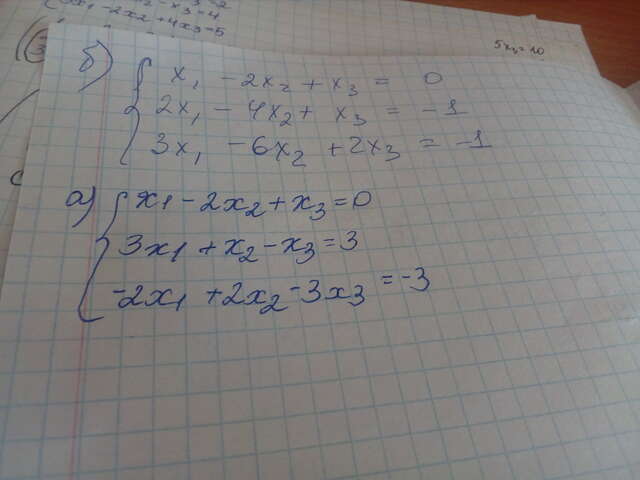 x1 - 2x2 + 4x3 = 5
5x3 = 10
б) { x₁ - 2x₂ + x₃ = 0
2x₁ - 4x₂ + x₃ = -1
3x₁ - 6x₂ + 2x₃ = -1
а) { x1 - 2x2 + x3 = 0
3x1 + x2 - x3 = 3
-2x1 + 2x2 - 3x3 = -3